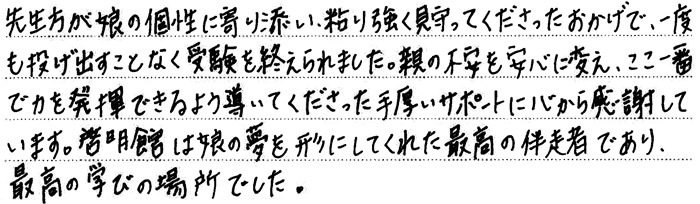 先生方が娘の個性に寄り添い、粘り強く見守ってくださったおかげで、一度
も投げ出すことなく受験を終えられました。親の不安を安心に変え、ここ一番
で力を発揮できるよう導いてくださった手厚いサポートに心から感謝して
います。啓明館は娘の夢を形にしてくれた最高の伴走者であり、
最高の学びの場所でした。